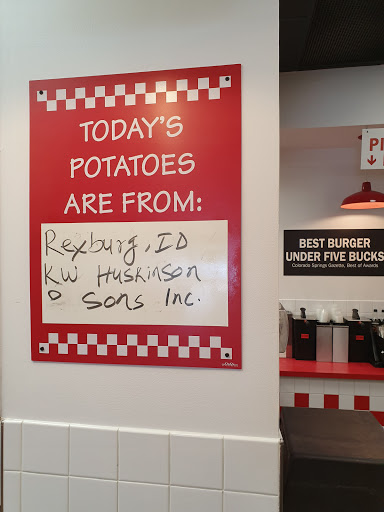 TODAY'S
POTATOES
ARE FROM:
Rexburg, ID
KW Huskinson
Sons Inc.
BEST BURGER
UNDER FIVE BUCKS
Colorado Springs Gazette, Best of Awards